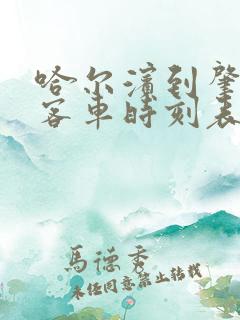 哈尔滨到肇
客车时刻表
馬德秀
未经同意禁止转载